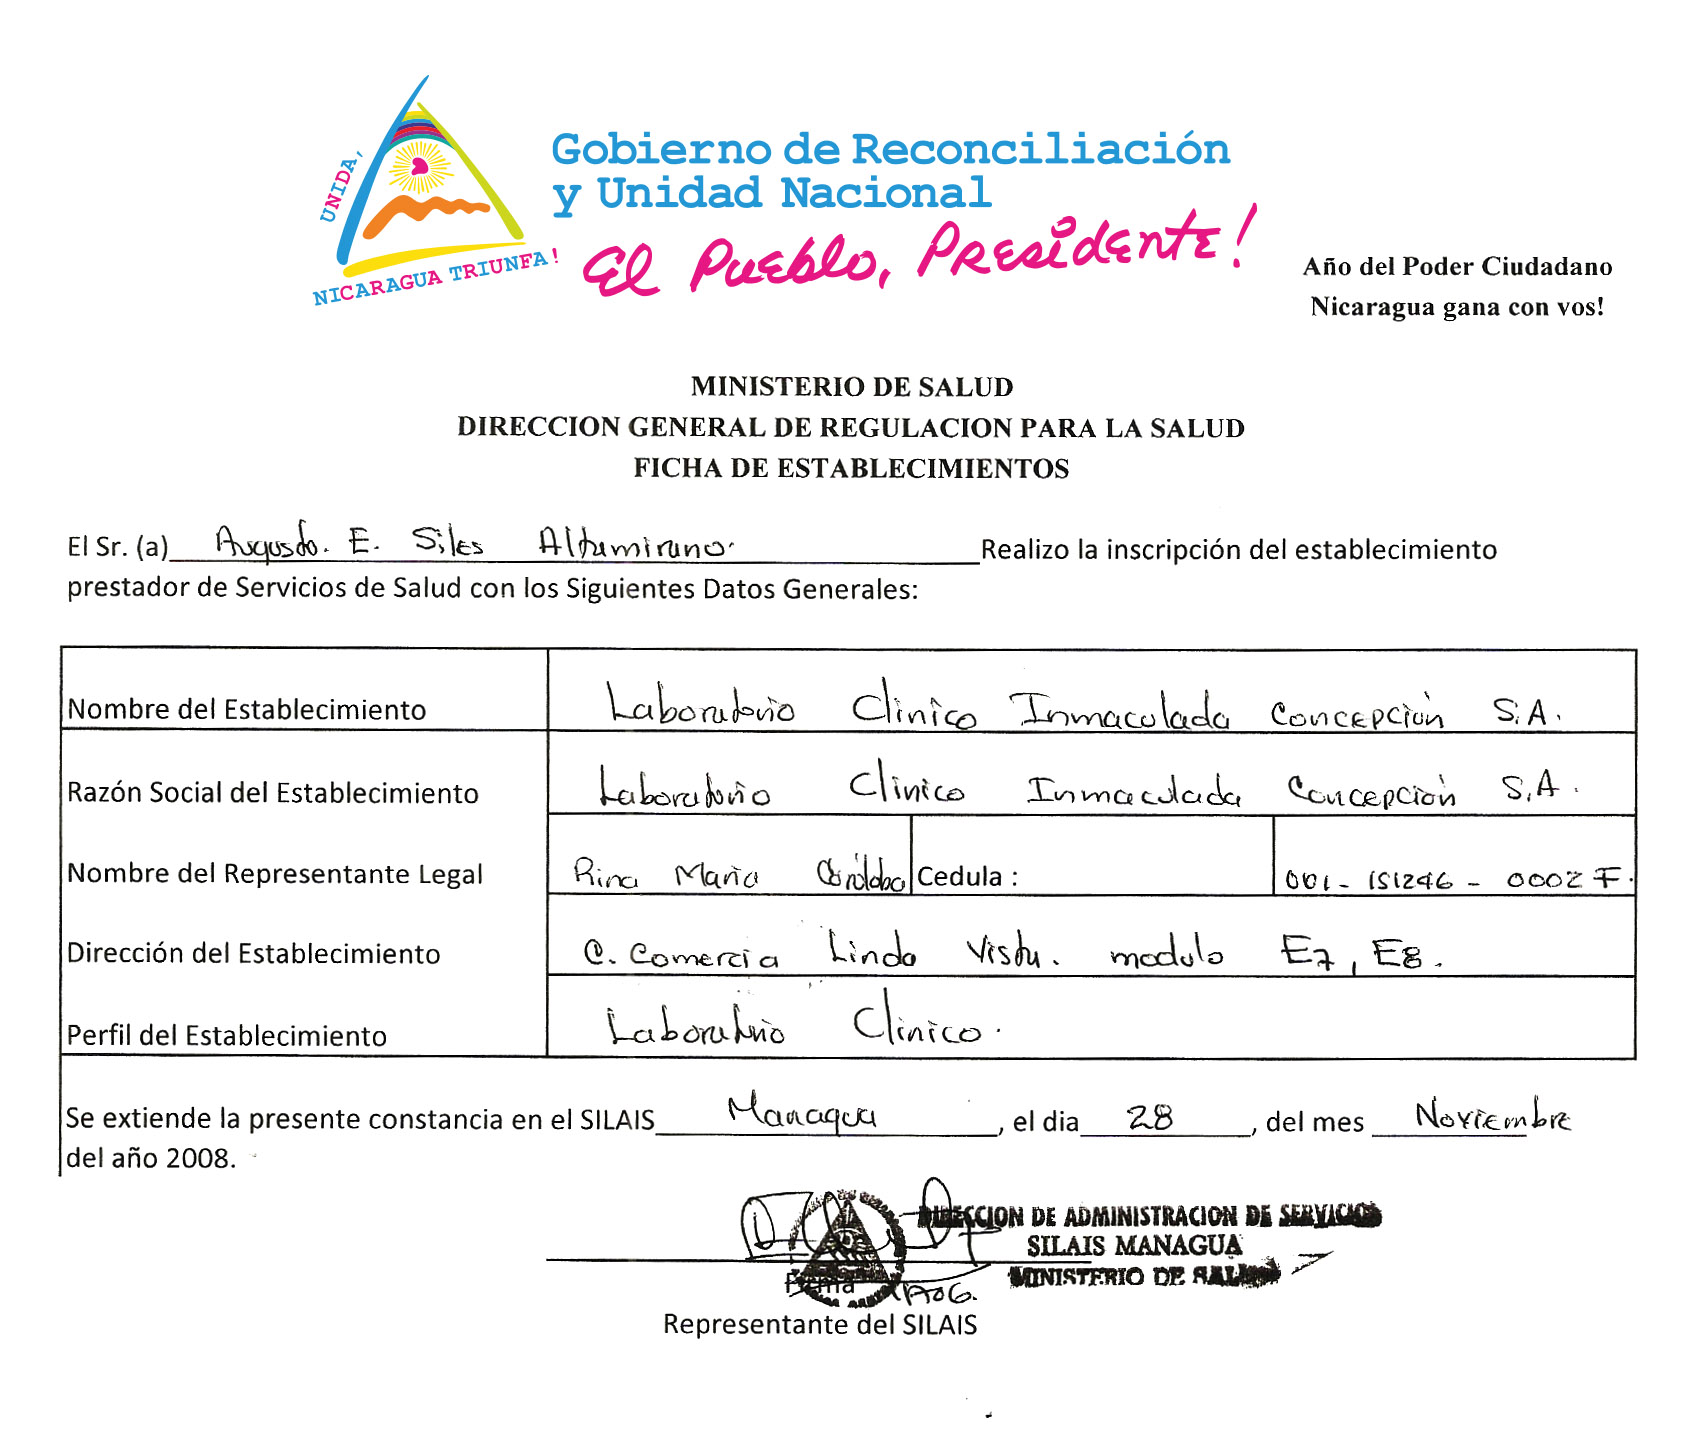 UNIDA,
NICARAGUA TRIUNFA!
Gobierno de Reconciliación
y Unidad Nacional
El Pueblo, Presidente!
Año del Poder Ciudadano
Nicaragua gana con vos!
MINISTERIO DE SALUD
DIRECCION GENERAL DE REGULACION PARA LA SALUD
FICHA DE ESTABLECIMIENTOS
El Sr. (a) Augusto. E. Siles Altamirano. Realizo la inscripción del establecimiento
prestador de Servicios de Salud con los Siguientes Datos Generales:
Nombre del Establecimiento Laboratorio Clinico Inmaculada Concepción S.A.
Razón Social del Establecimiento Laboratorio Clinico Inmaculada Concepción S.A.
Nombre del Representante Legal Rina Maria Córdoba Cedula : 001-151246-0002F.
Dirección del Establecimiento C. Comercia Linda Vista. modulo E7, E8.
Perfil del Establecimiento Laboratorio Clinico.
Se extiende la presente constancia en el SILAIS Managua, el dia 28, del mes Noviembre
del año 2008.
DIRECCION DE ADMINISTRACION DE SERVICIOS
SILAIS MANAGUA
MINISTERIO DE SALUD
Firma
Representante del SILAIS